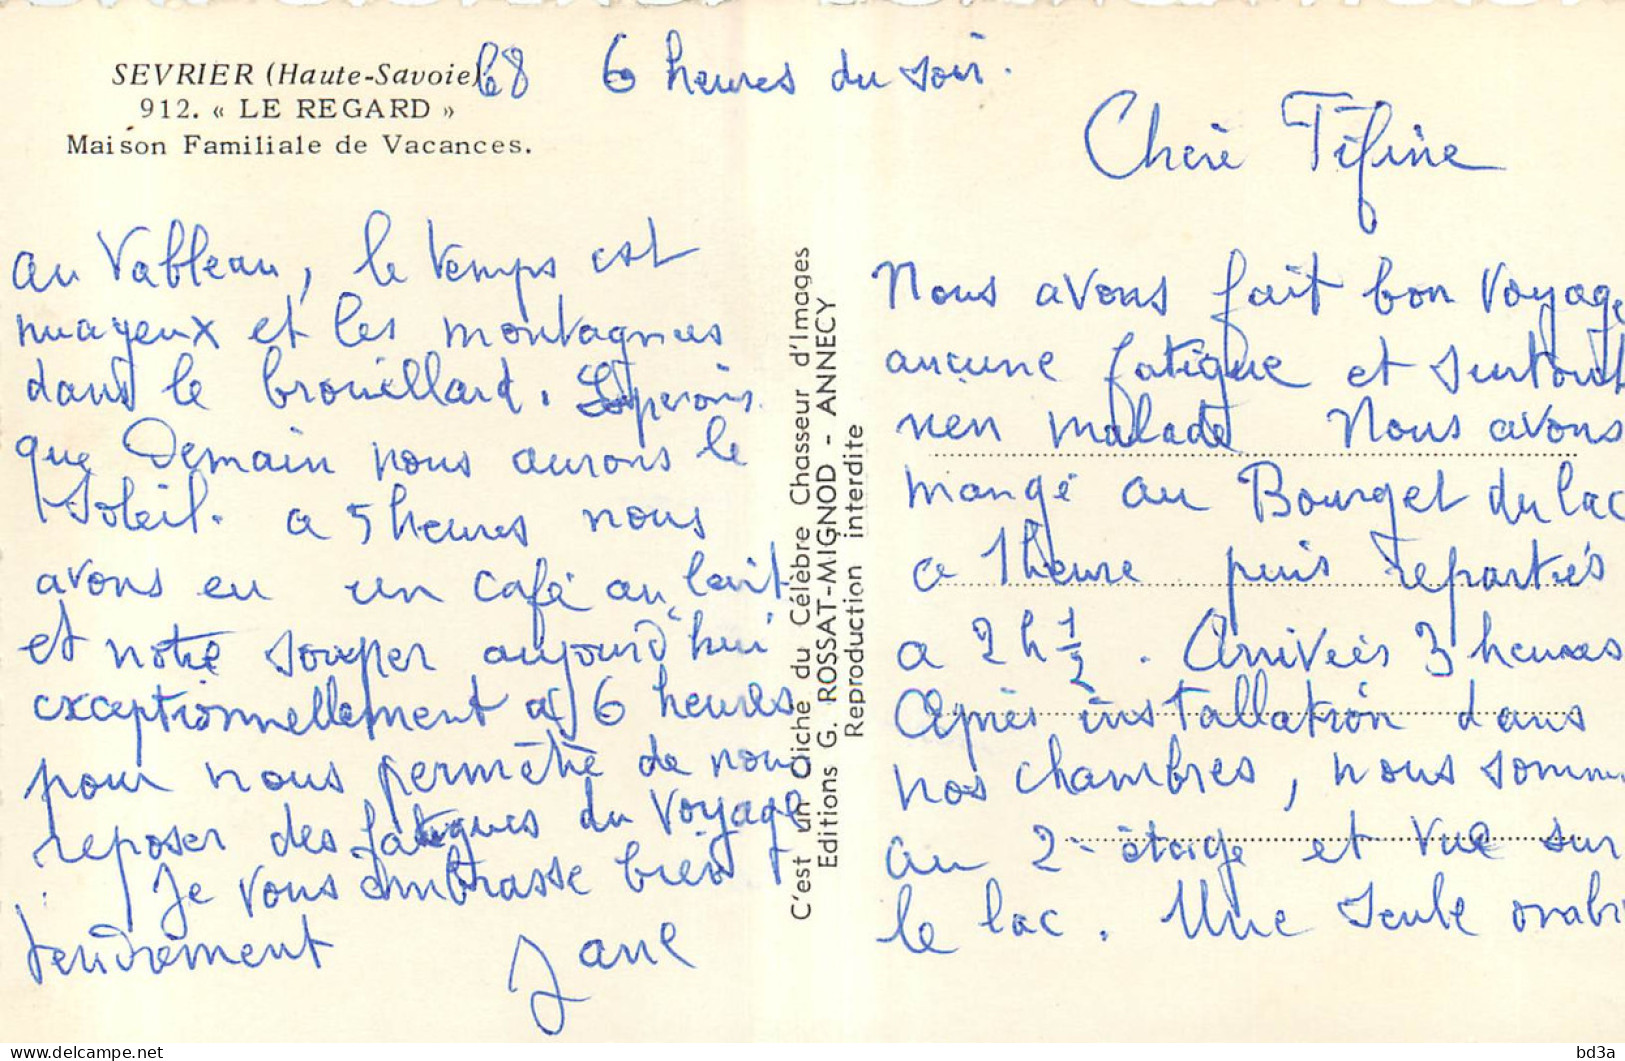 SEVRIER (Haute-Savoie)
912. « LE REGARD »
Maison Familiale de Vacances.
68 6 heures du soir.
Chère Fifine
Nous avons fait bon voyage
aucune fatigue et surtout
nen malade Nous avons
mangé au Bourget du lac
a 1 heure puis reparties
a 2 h 1/2. Arrivées 3 heures
Après installation dans
nos chambres, nous somm
au 2e étage et vue sur
le lac. Une seule ombr
au tableau, le temps est
nuageux et les montagnes
dans le brouillard. Esperons
que Demain nous aurons le
Soleil. a 5 heures nous
avons eu un café au lait
et notre souper aujourd'hui
exceptionnellement a 6 heures
pour nous permetre de nous
reposer des fatigues du voyage
Je vous embrasse bien
tendrement Jane
C'est un Cliché du Célèbre Chasseur d'Images
Editions G. ROSSAT-MIGNOD - ANNECY
Reproduction interdite
delcampe.net
bd3a